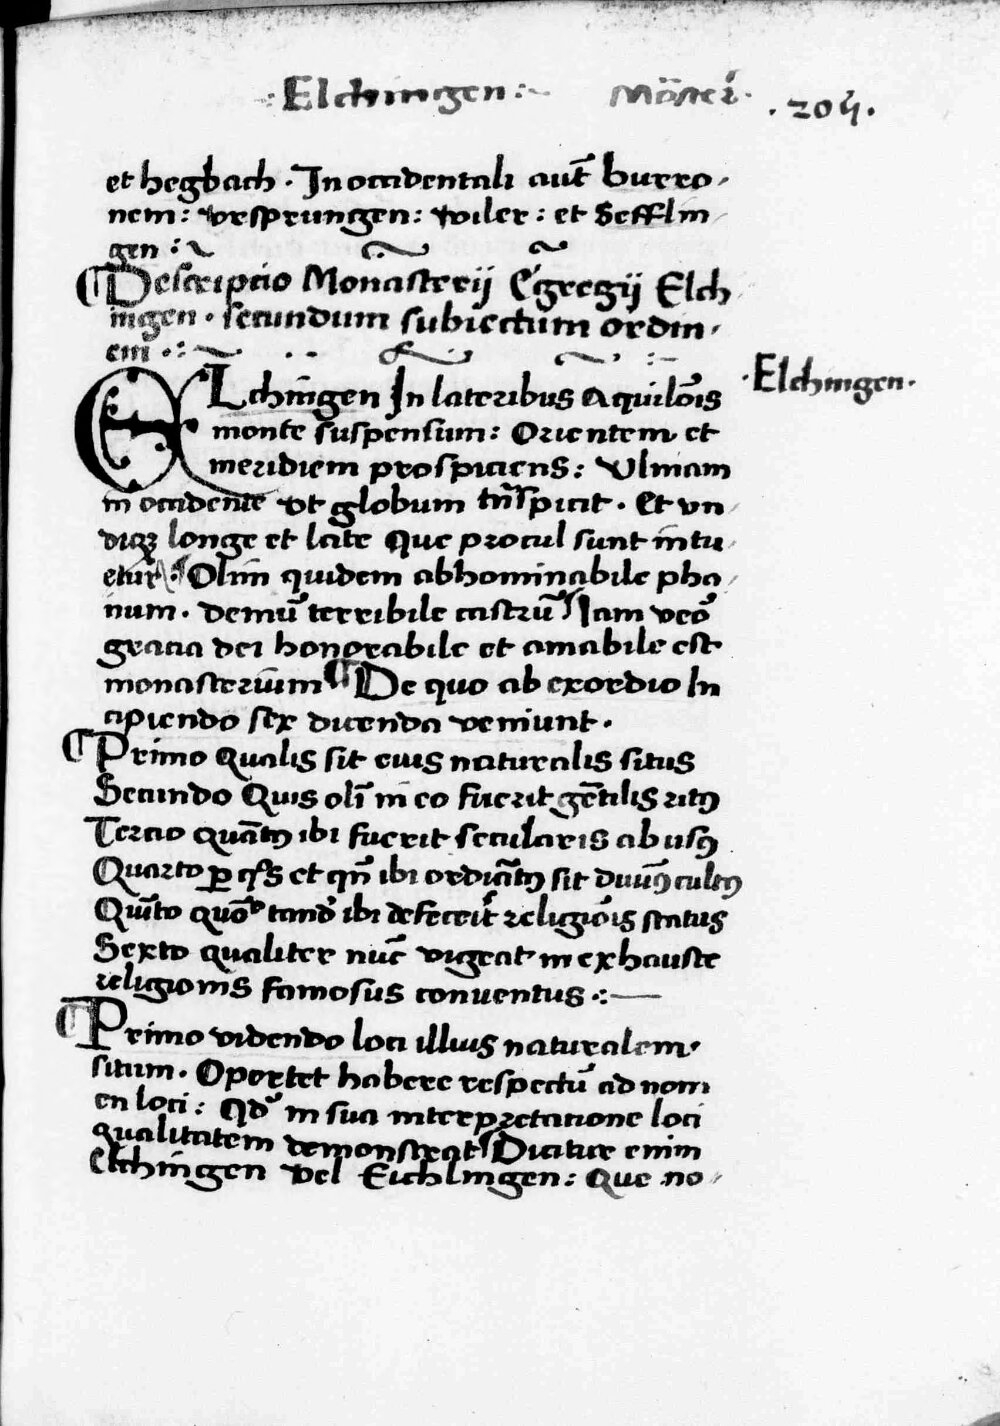 ·:Elchingen:~ Möster̃· ·204·
et hegbach · In occidentali aut̃ burro-
nem: vrsprungen: wiler: et Sefflin
gen:~
¶Descriptio Monasterij Egregij Elch
ingen · secundum subiectum ordin-
em ·:~
ELchingen In lateribus Aquilõis
·Elchingen·
monte suspensum: Orientem et
meridiem prospiciens: Vlmam
in occidente vt globum trñspicit · Et vn-
diqꝫ longe et late Que procul sunt intu-
etur̃ · Olim quidem abhominabile pha-
num · demũ terribile castrũ Iam veõ
gracia dei honorabile et amabile est
monasterium ¶De quo ab exordio In
cipiendo sex dicenda veniunt ·
¶Primo Qualis sit eius naturalis situs
Secundo Quis olĩ in eo fuerit gẽtilis ritꝰ
Tercio quãtꝰ ibi fuerit secularis abusꝰ
Quarto ꝑ q̃s et qñ ibi ordiãtꝰ sit diuinꝰ cultꝰ
Quĩto quõ tand̾ ibi defecerit religiõis status
Sexto qualiter nũc vigeat in exhauste
religionis famosus conuentus ·:—
¶Primo videndo loci illius naturalem·
situm · Oportet habere respectũ ad nom
en loci: Qd̾ in sua interpretatione loci
qualitatem demonstrat Dicitur enim
Elchingen vel Eichlingen: Que no-